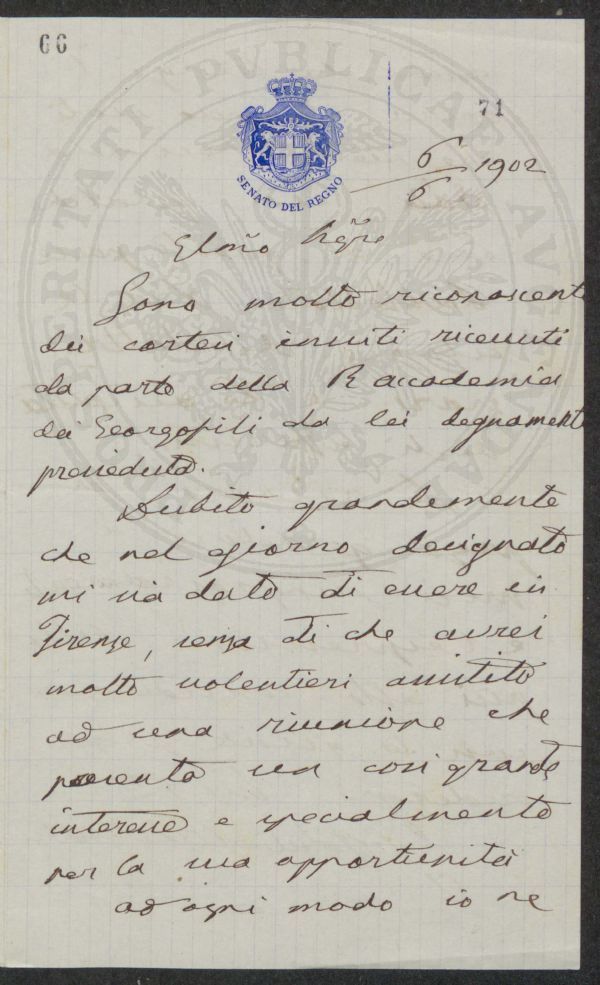 66
71
SENATO DEL REGNO
6/6 1902
Sono molto riconoscent
dei cortesi inviti ricevuti
da parte della R accademia
dei Georgofili da lei degnament
presieduta.
Dubito grandemente
che nel giorno designato
mi sia dato di essere in
Firenze, senza di che avrei
molto volentieri assistito
ad una riunione che
presenta un così grande
interesse e specialmente
per la sua opportunità
ad ogni modo io ne